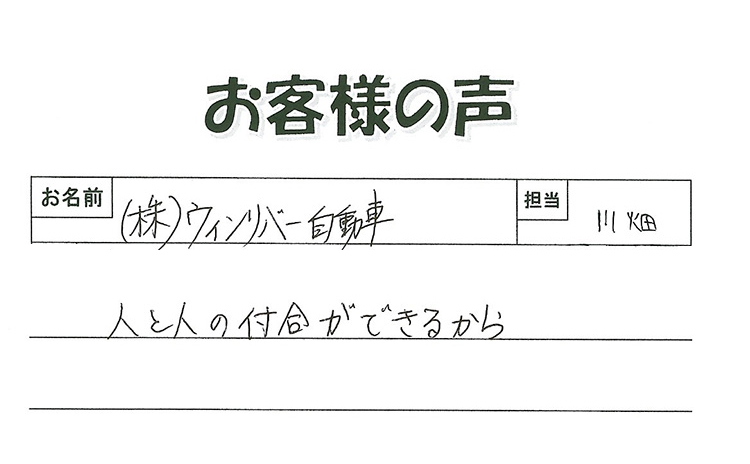 お客様の声
お名前
(株)ウィンリバー自動車
担当
川畑
人と人の付合ができるから